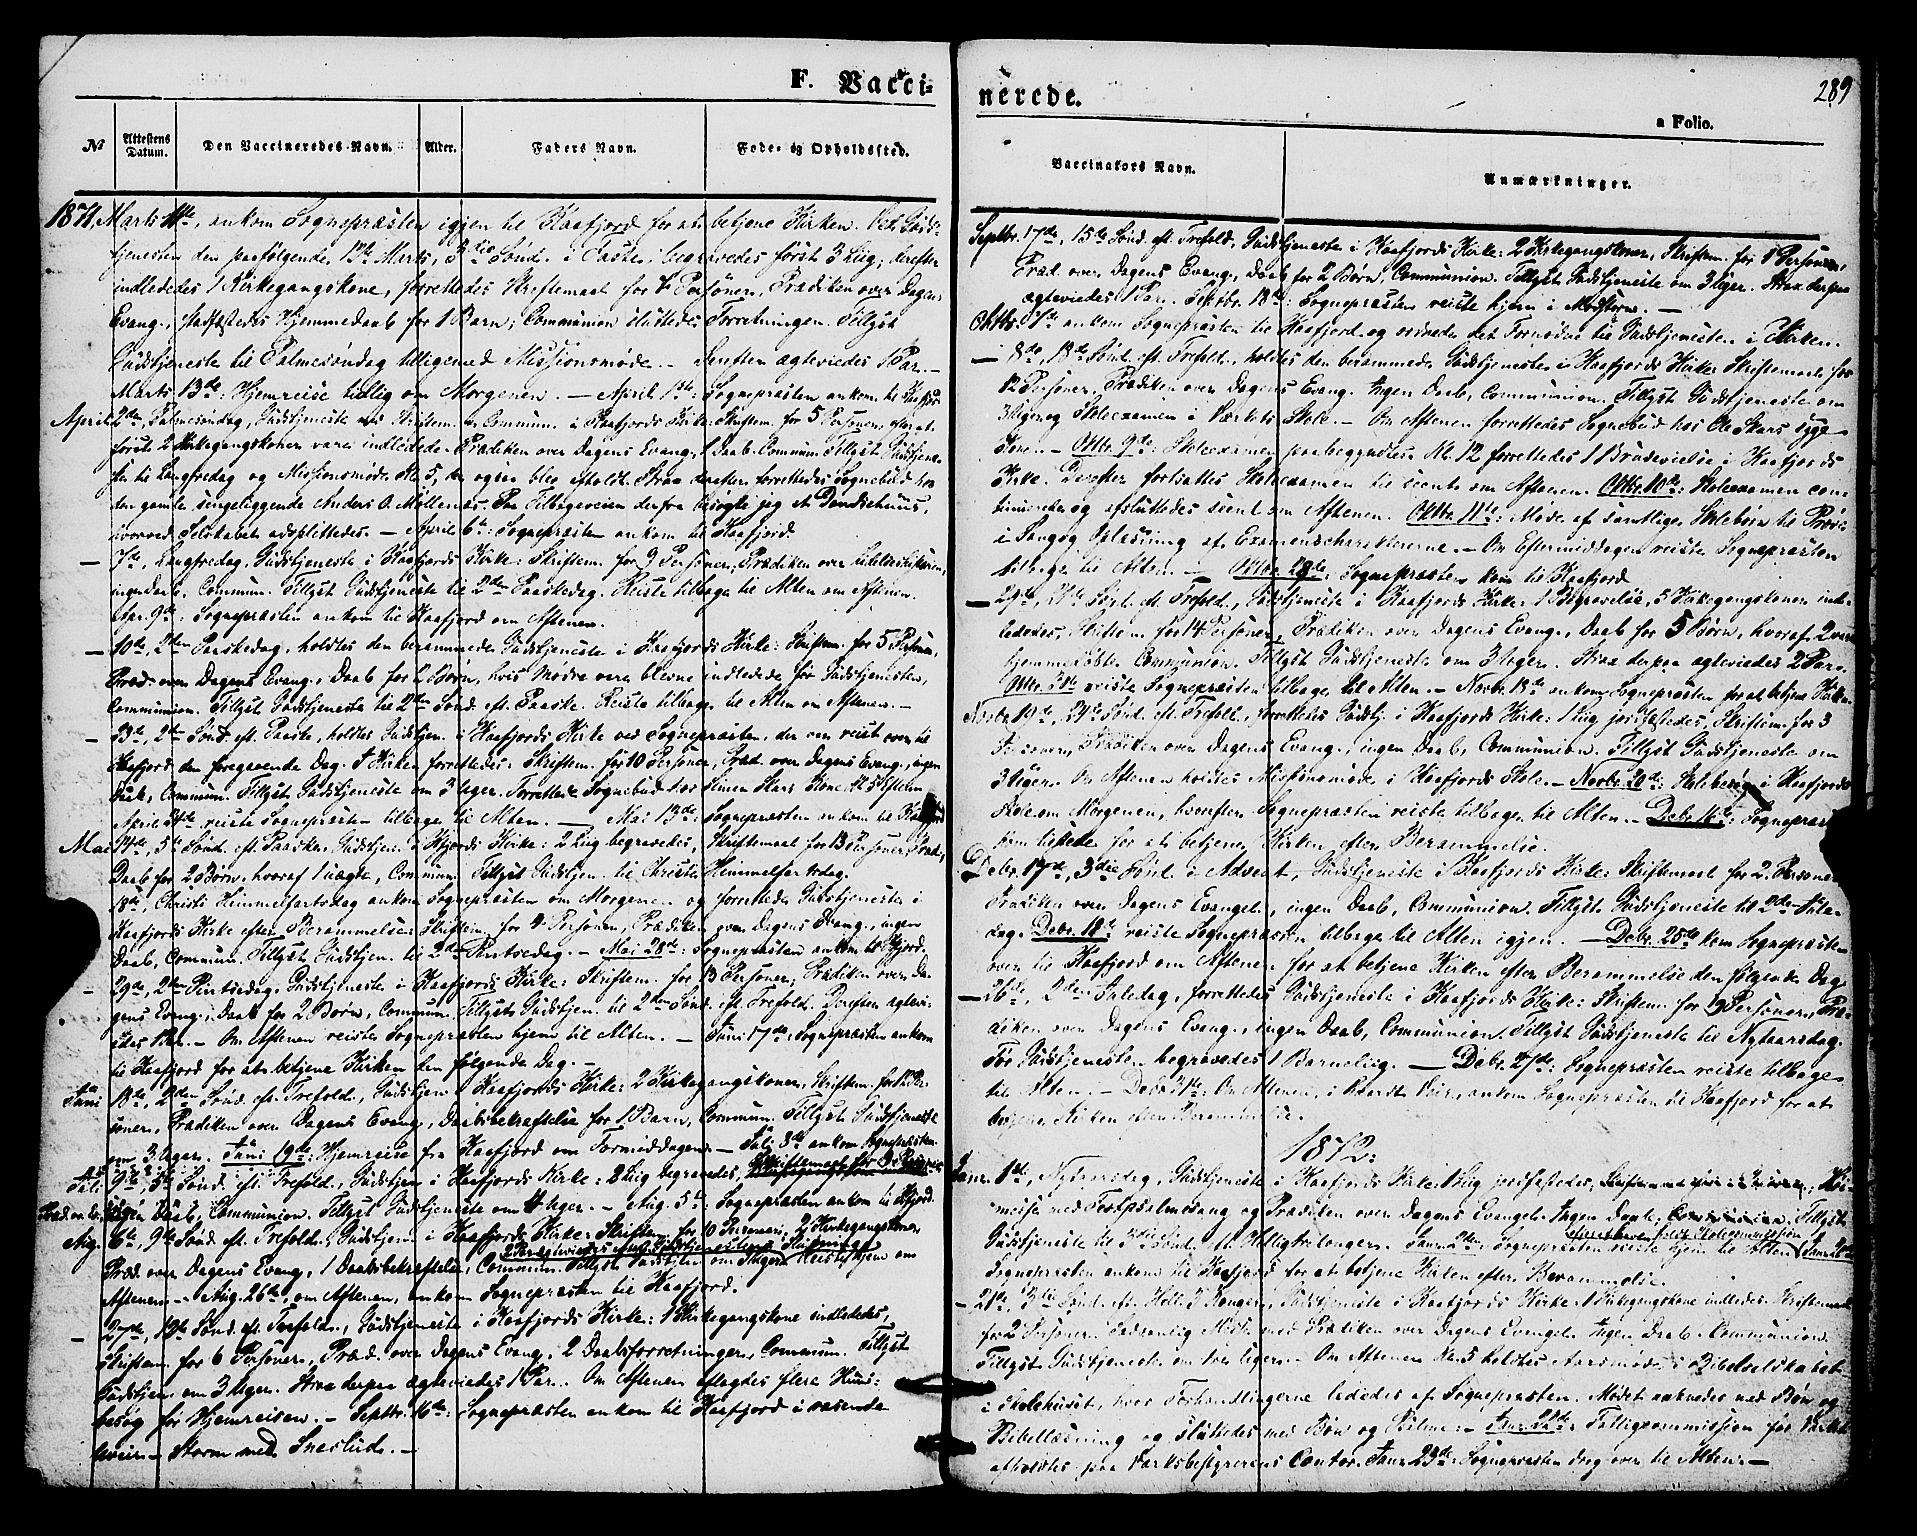 F. Vacci-
nerede.
289
a Folio.
№ Attestens Datum. Den Vaccineredes Navn. Alder. Faders Navn. Føde- og Opholdssted.
Vaccinators Navn. Anmærkninger.
1871, Marts 11te, ankom Sognepræsten igjen til Kaafjord for at betjene Kirken. Ved Guds-
tjenesten den paafølgende 12te Marts, 3die Sönd. i Faste, begravedes först 3 Liig, derefter
indlededes 1 Kirkegangskone, forrettedes Skriftemaal for 7 Personer, Prædiken over Dagens
Evang., stadfæstedes Hjemmedaab for 1 Barn; Communion sluttedes Forretningen. Tillyst
Gudstjeneste til Palmesöndag tilligemed Missionsmöde. Derefter ægteviedes 1 Par.
Marts 13de: Hjemreise tidlig om Morgenen. – April 1ste: Sognepræsten ankom til Kaafjord
April 2den, Palmesöndag, Gudstjeneste med Skriftem. og Commun. i Kaafjords Kirke: Skriftem. for 5 Personer, efter at
förste 2 Kirkegangskoner vare indledede. Prædiken over Dagens Evang., 1 Daab. Commun. Tillyst Gudstjene-
ste til Langfredag og Missionsmöde Kl. 5, der ogsaa blev afholdt. Strax derefter forrettedes Sognebud hos
den gamle sengeliggende Anders O. Möllenæs. Paa Tilbageveien derfra besögte jeg et Dandsehuus,
hvorved Selskabet adsplittedes. – April 6te: Sognepræsten ankom til Kaafjord.
– 7de, Langfredag, Gudstjeneste i Kaafjords Kirke: Skriftem. for 9 Personer, Prædiken over Lidelseshistorien,
ingen Daab, Commun. Tillyst Gudstjeneste til 2den Paaskedag. Reiste tilbage til Alten om Aftenen.
Apr. 9de: Sognepræsten ankom til Kaafjord om Aftenen.
– 10de, 2den Paaskedag, holdtes den berammede Gudstjeneste i Kaafjords Kirke: Skriftem. for 5 Personer,
Præd. over Dagens Evang., Daab for 2 Börn, hvis Mödre vare blevne indledede för Gudstjenesten,
Communion. Tillyst Gudstjeneste til 2den Sönd. eft. Paaske. Reiste tilbage til Alten om Aftenen. –
– 23de, 2den Sönd. eft. Paaske, holdtes Gudstjen. i Kaafjords Kirke ved Sognepræsten, der var reist over til
Kaafjord den foregaaende Dag. I Kirken forrettedes: Skriftem. for 10 Personer, Præd. over Dagens Evang., ingen
Daab, Commun. Tillyst Gudstjeneste om 3 Uger. Forrettede Sognebud hos Simen Skars Kone Kl. 5 Eftermd.
April 24de reiste Sognepræsten tilbage til Alten. – Mai 13de: Sognepræsten ankom til Kaafjord
Mai 14de, 5te Sönd. eft. Paaske, Gudstjen. i Kfjords Kirke: 2 Liig begravedes, Skriftemaal for 13 Personer, Præd.,
Daab for 2 Börn, hvoraf 1 uægte, Commun. Tillyst Gudstjen. til Christi Himmelfartsdag.
18de, Christi Himmelfartsdag ankom Sognepræsten om Morgenen og forrettede Gudstjeneste i
Kaafjords Kirke efter Berammelse: Skriftem. for 4 Personer, Prædiken over Dagens Evang., ingen
Daab, Commun. Tillyst Gudstjen. til 2den Pintsedag. – Mai 28de: Sognepræsten ankom til Kfjord.
– 29de, 2den Pintsedag. Gudstjeneste i Kaafjords Kirke: Skriftem. for 13 Personer, Prædiken over Da-
gens Evang., Daab for 2 Börn, Commun. Tillyst Gudstjen. til 2den Sönd. eft. Trefold. Derefter ægtevi-
edes 1 Par. – Om Aftenen reiste Sognepræsten hjem til Alten. – Juni 17de: Sognepræsten ankom
til Kaafjord for at betjene Kirken den fölgende Dag. –
Juni 18de, 2den Sönd. eft. Trefold., Gudstjen. i Kaafjords Kirke: 2 Kirkegangskoner, Skriftem. for 11 Per-
soner, Prædiken over Dagens Evang., Daabsbekræftelse for 1 Barn, Commun. Tillyst Gudstjeneste
om 3 Uger. Juni 19de: Hjemreise fra Kaafjord om Formiddagen. – Juli 8de ankom Sognepræsten.
Juli 9de, 5te Sönd. eft. Trefold., Gudstjen. i Kaafjords Kirke: 2 Liig begravedes,
ingen Daab, Communion. Tillyst Gudstjeneste om 4 Uger. – Aug. 5te: Sognepræsten ankom til Kfjord.
Aug. 6te, 9de Sönd. eft. Trefold., Gudstjen. i Kaafjords Kirke: Skriftem. for 10 Personer, 2 Kirkegangskoner,
Præd. over Dagens Evang., 1 Daabsbekræftelse, Commun. Tillyst Gudstjen. om 3 Uger. Reiste hjem om
Aftenen. – Aug. 26de, om Aftenen, ankom Sognepræsten til Kaafjord.
– 27de, 12te Sönd. eft. Trefold., Gudstjeneste i Kaafjords Kirke: 1 Kirkegangskone indledes,
Skriftem. for 6 Personer, Præd. over Dagens Evang., 2 Daabsforretninger, Commun. Tillyst
Gudstjen. om 3 Uger. Strax derpaa ægteviedes 1 Par. Om Aftenen aflagdes flere Huus-
besög för Hjemreisen. – Septbr. 16de: Sognepræsten ankom til Kaafjord i rasende
Storm med Sneslud. –
Septbr. 17de, 15de Sönd. eft. Trefold., Gudstjeneste i Kaafjords Kirke: 2 Kirkegangskoner, Skriftem. for 8 Personer,
Præd. over Dagens Evang., Daab for 2 Börn, Communion. Tillyst Gudstjeneste om 3 Uger. Strax derpaa
ægteviedes 1 Par. Septbr. 18de: Sognepræsten reiste hjem i Modstorm. –
Oktbr. 7de ankom Sognepræsten til Kaafjord og ordnede det Fornödne til Gudstjenesten i Kirken.
– 8de, 18de Sönd. eft. Trefold., holdtes den berammede Gudstjeneste i Kaafjords Kirke: Skriftemaal for
12 Personer, Prædiken over Dagens Evang. Ingen Daab, Communion. Tillyst Gudstjeneste om
3 Uger og Skoleexamen i Værkets Skole. – Om Aftenen forrettedes Sognebud hos Ole Skars syge
Kone. – Oktbr. 9de: Skoleexamen paabegyndtes. Kl. 12 forrettedes 1 Brudevielse i Kaafjords
Kirke. Derefter fortsattes Skoleexamen til seent om Aftenen. Oktbr. 10de: Skoleexamen con-
tinueredes og afsluttedes seent om Aftenen. Oktbr. 11te: Möde af samtlige Skolebörn til Pröve
i Sang og Oplæsning af Examenscharaktererne. – Om Eftermiddagen reiste Sognepræsten
tilbage til Alten. – Oktbr. 28de: Sognepræsten kom til Kaafjord
– 29de, 21de Sönd. eft. Trefold., Gudstjeneste i Kaafjords Kirke: 1 Begravelse, 3 Kirkegangskoner ind-
lededes, Skriftem. for 14 Personer, Prædiken over Dagens Evang., Daab for 5 Börn, hvoraf 2 vare
hjemmedöbte. Communion. Tillyst Gudstjeneste om 3 Uger. Strax derpaa ægteviedes 2 Par.
Oktbr. 30te reiste Sognepræsten tilbage til Alten. – Novbr. 18de ankom Sognepræsten for at betjene Kirken.
Novbr. 19de, 24de Sönd. eft. Trefold., forrettedes Gudstj. i Kaafjords Kirke: 1 Liig jordfæstedes, Skriftem. for 3
Personer, Prædiken over Dagens Evang., ingen Daab, Communion. Tillyst Gudstjeneste om
3 Uger. Om Aftenen holdtes Missionsmöde i Kaafjords Skole. – Novbr. 20de: Skolebesög i Kaafjords
Skole om Morgenen, hvorefter Sognepræsten reiste tilbage til Alten. – Debr. 16de: Sognepræsten
tilstede for at betjene Kirken efter Berammelse.
Debr. 17de, 3die Sönd. i Advent, Gudstjeneste i Kaafjords Kirke: Skriftemaal for 2 Personer,
Prædiken over Dagens Evangel., ingen Daab, Communion. Tillyst Gudstjeneste til 2den Jule-
dag. Debr. 18de reiste Sognepræsten tilbage til Alten igjen. – Debr. 25de kom Sognepræsten
over til Kaafjord om Aftenen for at betjene Kirken efter Berammelse den fölgende Dag.
– 26de, 2den Juledag, forrettedes Gudstjeneste i Kaafjords Kirke: Skriftem. for 2 Personer, Præ-
diken over Dagens Evang., ingen Daab, Communion. Tillyst Gudstjeneste til Nytaarsdag.
För Gudstjenesten begravedes 1 Barnelig. – Debr. 27de: Sognepræsten reiste tilbage
til Alten. – Debr. 31te: Om Aftenen, i haardt Veir, ankom Sognepræsten til Kaafjord for at
betjene Kirken efter Berammelse.
1872:
Janr. 1ste, Nytaarsdag, Gudstjeneste i Kaafjords Kirke: 1 Liig jordfæstedes, Höi-
messe med Fastpsalmesang og Prædiken over Dagens Evangel. Ingen Daab, Tillyst
Gudstjeneste til 3die Sönd. eft. Helligtrekonger. Janr. 2den: Sognepræsten reiste hjem til Alten. Janr. 20de
Sognepræsten ankom til Kaafjord for at betjene Kirken efter Berammelse.
– 21de, 3die Sönd. eft. Hell. 3 Konger, Gudstjeneste i Kaafjords Kirke: 1 Kirkegangskone indledes. Skriftemaal
for 2 Personer. Sædvanlig Messe med Prædiken over Dagens Evangel. Ingen Daab. Communion.
Tillyst Gudstjeneste om tre Uger. Om Aftenen Kl. 5 holdtes Aarsmöde i Bibelselskabet
i Skolehuset, hvor Forhandlingerne lededes af Sognepræsten. Mödet aabnedes med Bön og
Bibellæsning og sluttedes med Bön og Psalme. – Janr. 22de: Fattigcommission for Værket
afholdtes paa Værksbestyrerens Contor. Janr. 23de: Sognepræsten drog over til Alten. –